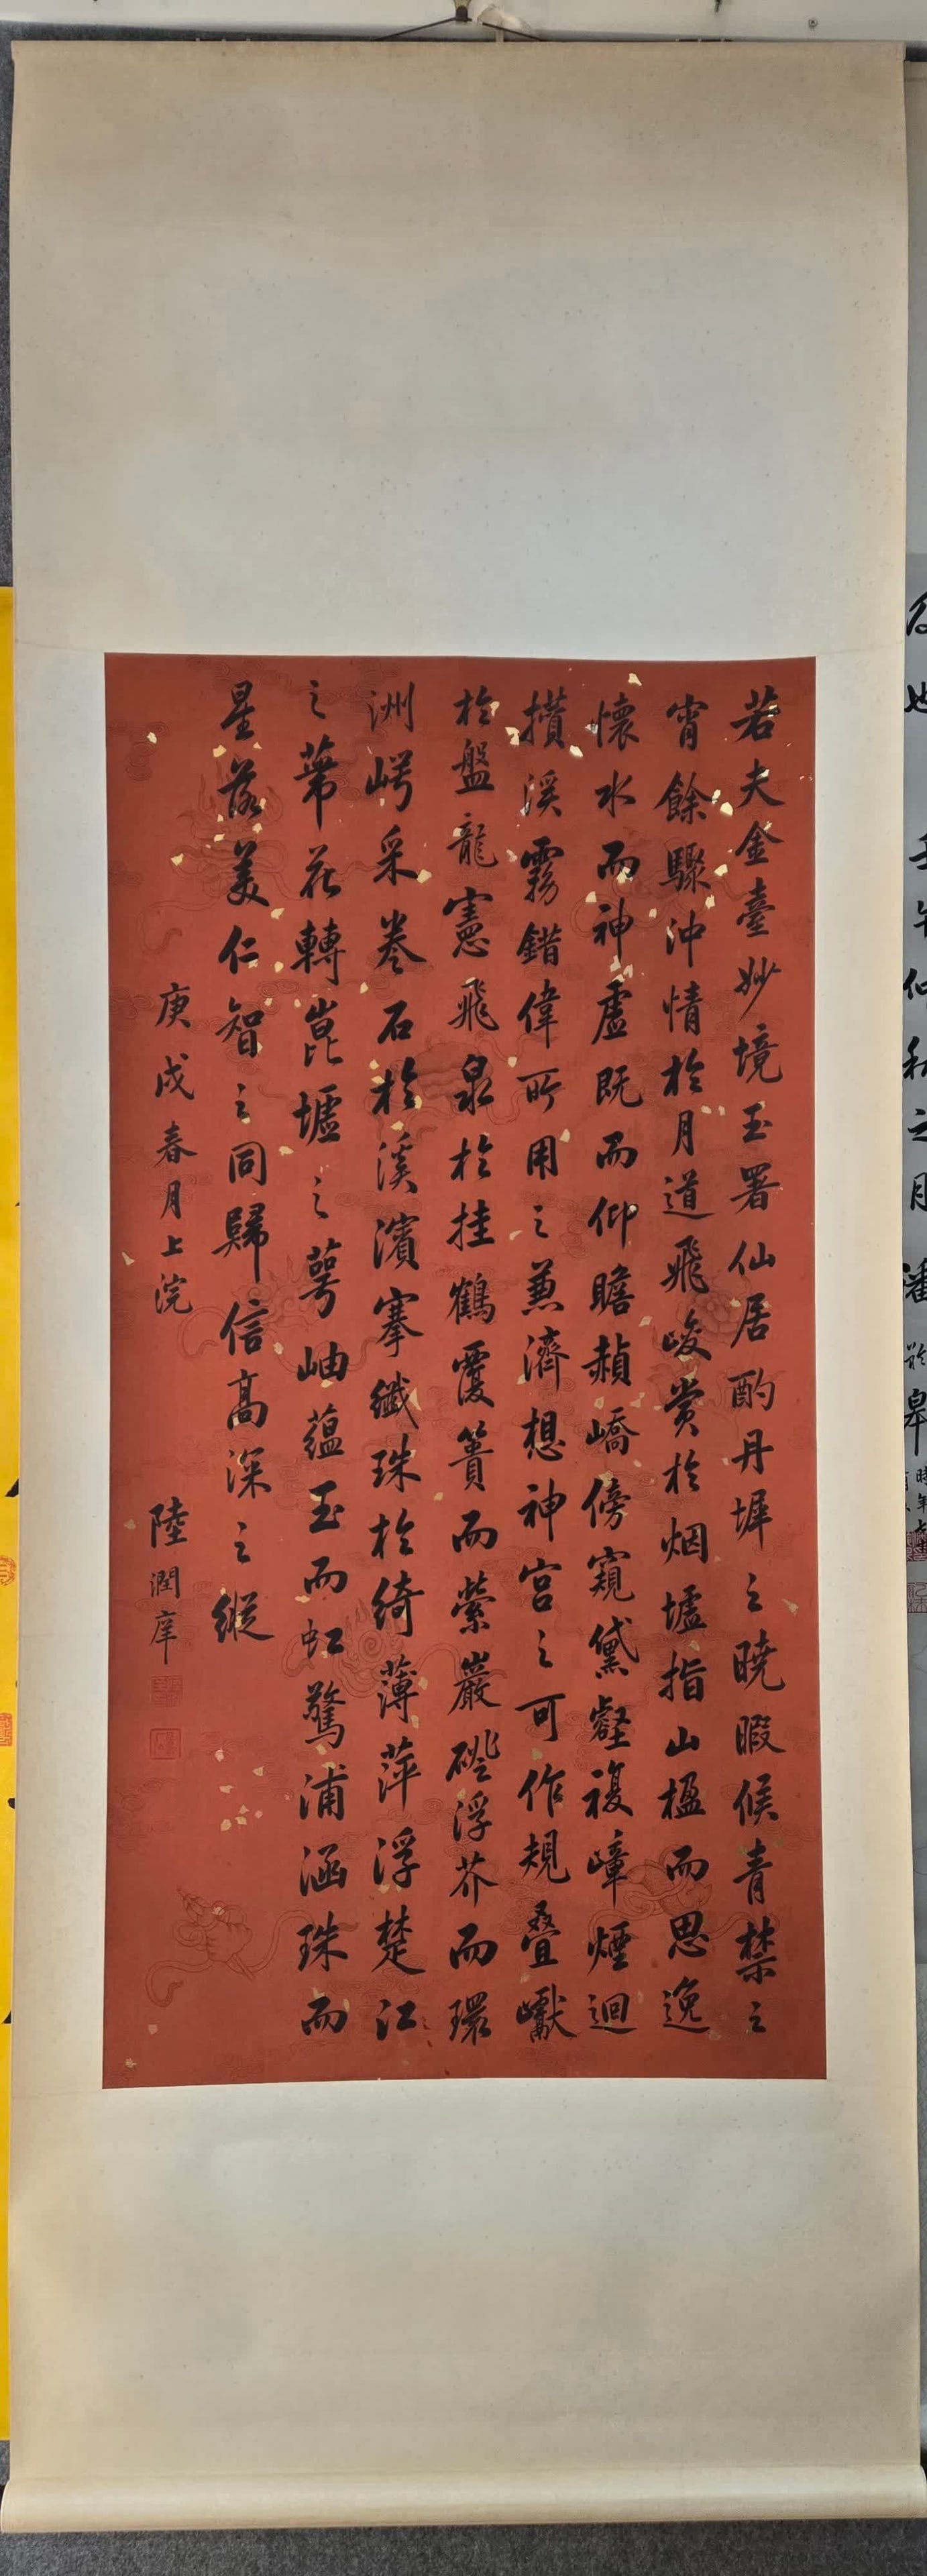 若夫金臺妙境玉署仙居酌丹墀之曉暇候青禁之
宵餘驟沖情於月道飛峻賞於烟墟指山楹而思逸
懷水而神虛既而仰瞻赬嶠傍窺黛壑複嶂煙迴
攢溪霧錯偉所用之兼濟想神宫之可作規疊巘
於盤龍寫飛泉於挂鶴覆簣而縈巖磴浮芥而環
洲崿采卷石於溪濱搴纖珠於綺薄萍浮楚江
之葉花轉崑墟之萼岫蘊玉而虹驚浦涵珠而
星落美仁智之同歸信高深之縱
庚戌春月上浣
陸潤庠